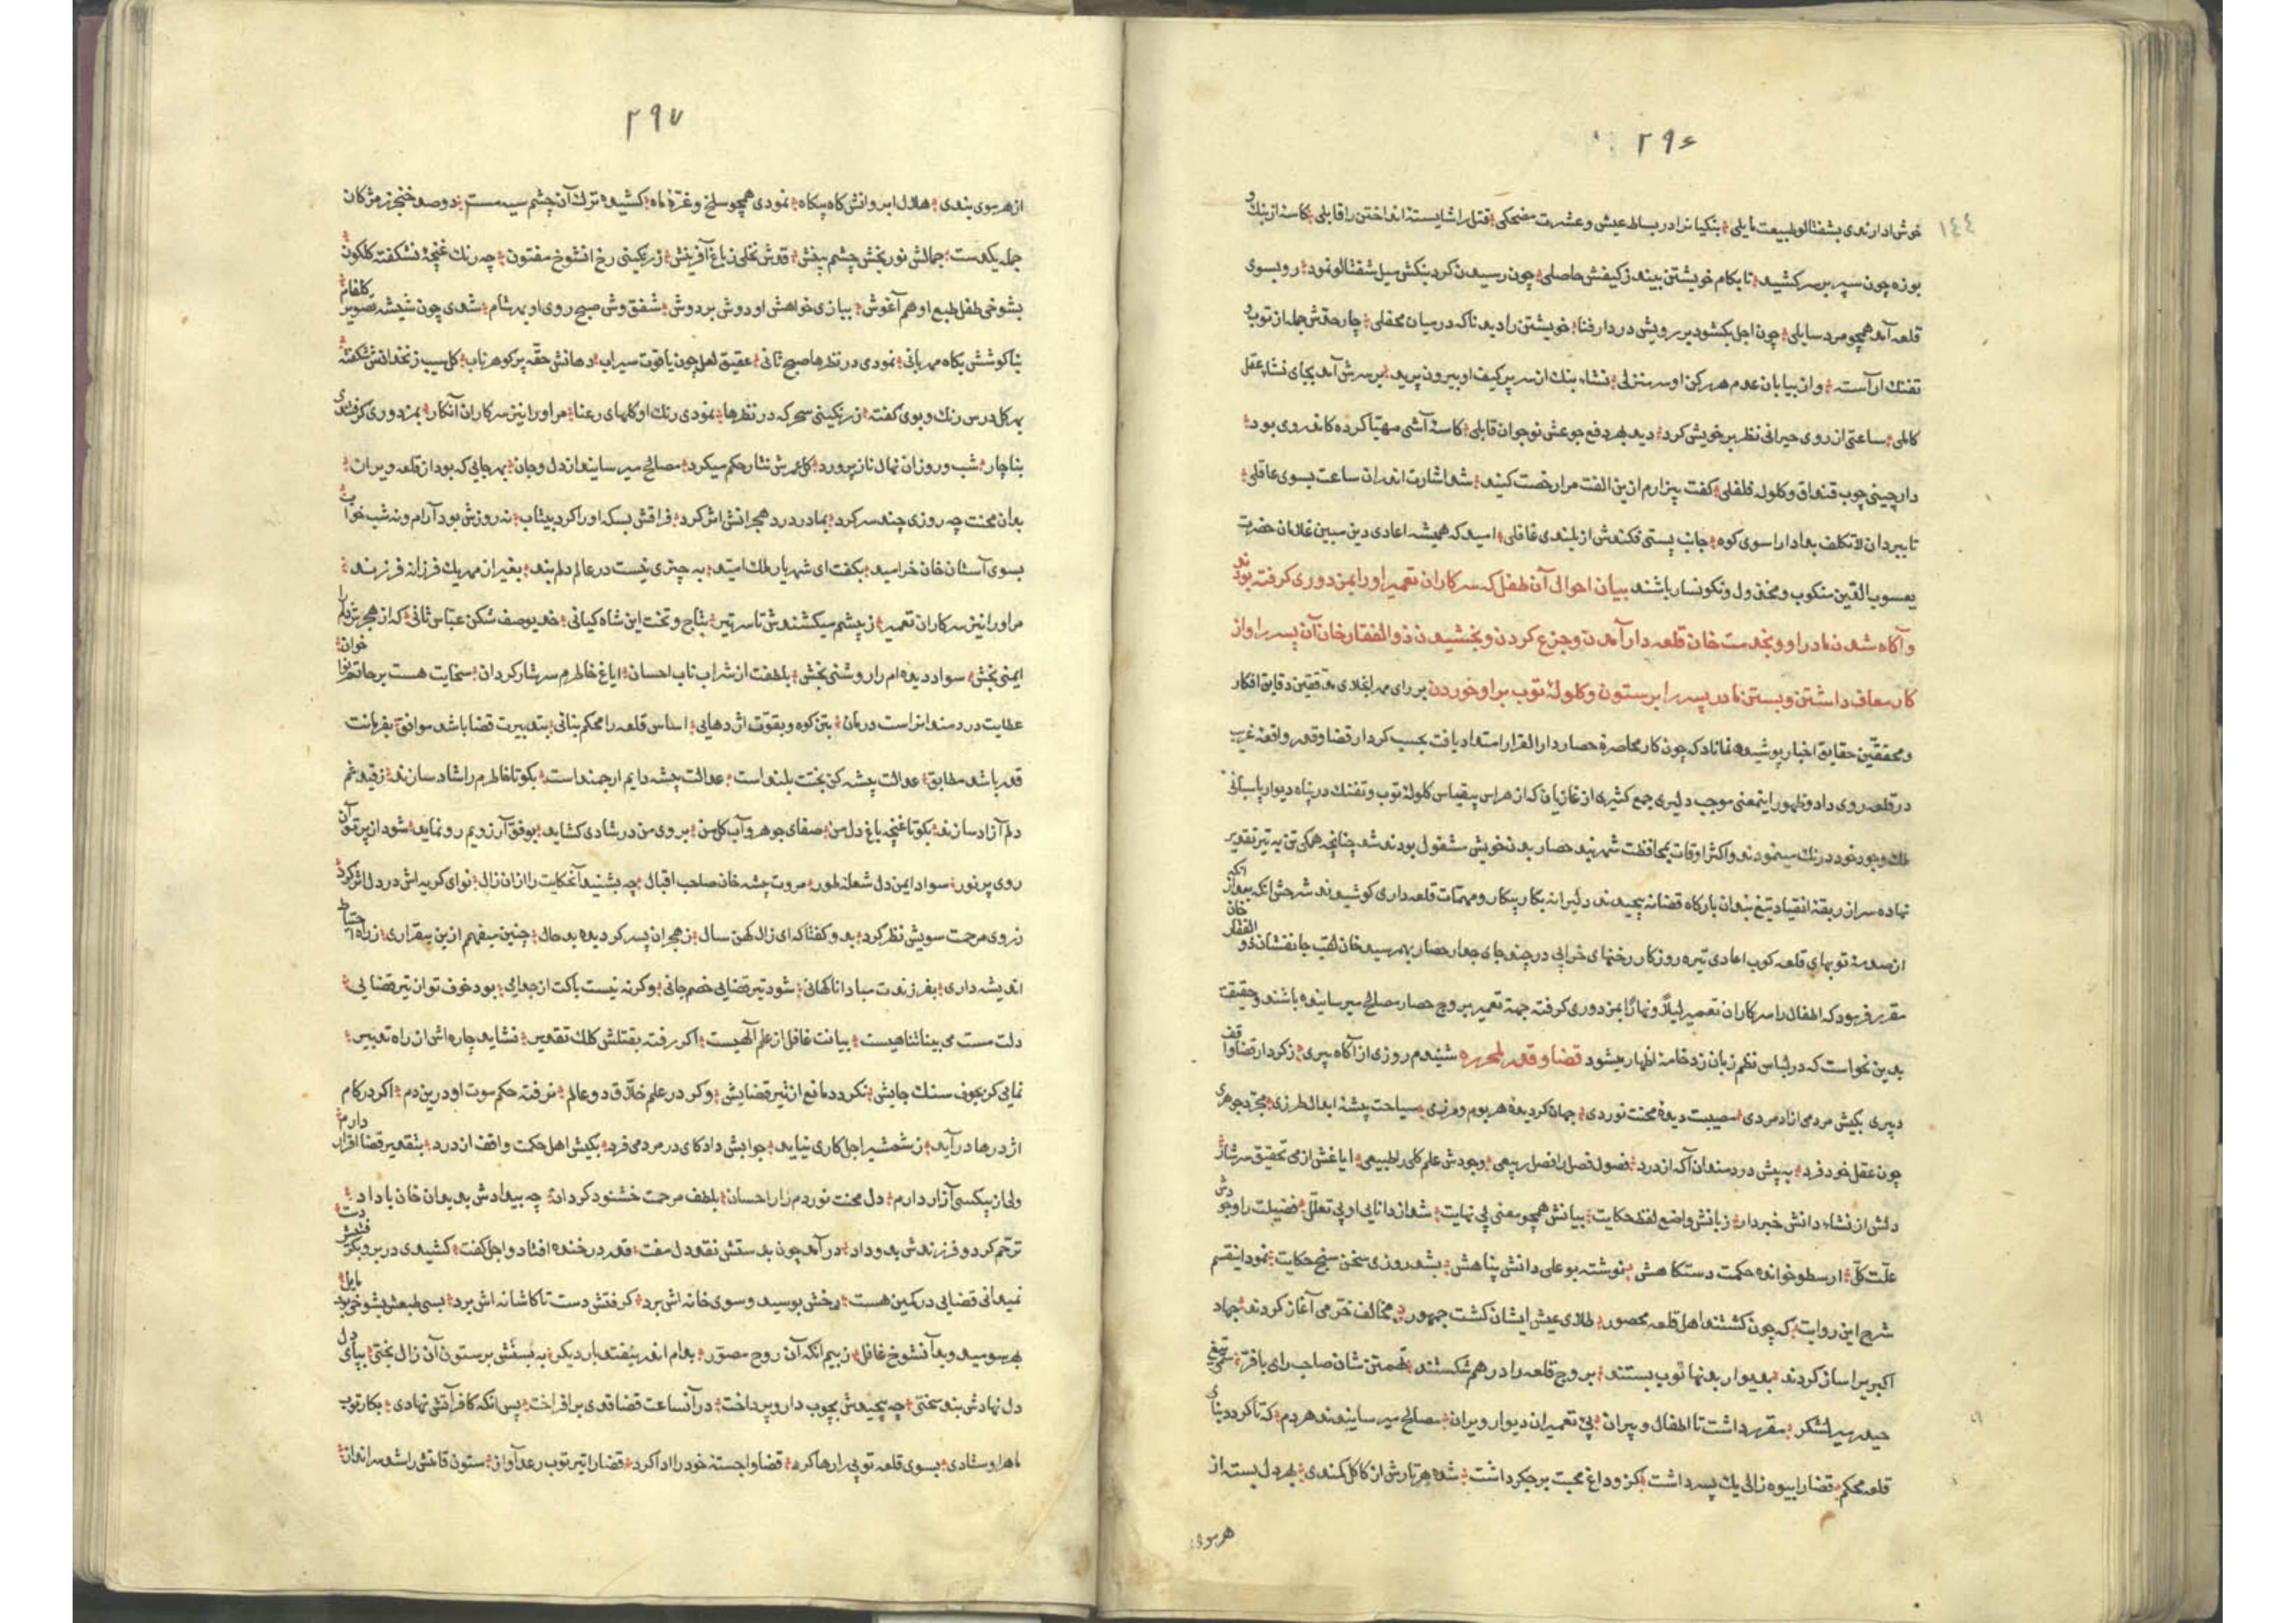 ۲۹۶
١٤٤
خوش ادار ندی بشفتالو طبیعت مایلی بنکیانرا در بساط عیش و عشرت مضحکی قتل را شایسته انداختن را قابلی کاسه از بنک
بوزه چون سپر بر سر کشید تا بکام خویشتن بیند ز کیفش حاصلی چون رسیدن کرد بنکش میل شفتالو نمود رو بسوی
قلعه آمد همچو مرد سایلی چون اجل بکشود بر رویش در دار فنا خویشتن را دید ناکه در میان محفلی چار حدش جمله از توپ و
تفنک آراسته وان بیابان عدم هر رکن او سر منزلی نشاء بنک از سر پر کیف او بیرون پرید بر سرش آمد بجای نشاء عقل
کاملی ساعتی از روی حیرانی نظر بر خویش کرد دید بهر دفع جوعش نوجوان قابلی کاسه آشی مهیا کرده کاندر وی بود
دارچینی چوب قنداق و کلوله فلفلی کفت بیزارم ازین الفت مرا رخصت کنید شد اشارت اندران ساعت بسوی عاقلی
تا ببردان لاتکلف بعد ادا را سوی کوه جانب پستی فکندش از بلندی غافلی امید که همیشه اعادی دین مبین غلامان حضرت
یعسوب الدین منکوب و مخذول و نکونسار باشند بیان احوال آن طفل که سرکاران تعمیر او را بمزدوری کرفته بودند
و آکاه شدن مادر او و بخدمت خان قلعه دار آمدن و جزع کردن و بخشیدن ذوالفقار خان آن پسر را و از
کار معاف داشتن و بستن مادر پسر را بر ستون و کلولۀ توپ بر او خوردن بر رای مهر انجلای مدققین دقایق افکار
و محققین حقایق اخبار پوشیده نماناد که چون کار محاصرۀ حصار دار القرار امتداد یافت بحسب کردار قضا و قدر واقعۀ غریب
در قلعه روی داد و ظهور اینمعنی موجب دلیری جمع کثیری از غازیان که از هراس بیقیاس کلولۀ توپ و تفنک در پناه دیوار پاسبانی
ملک وجود خود درنک مینمودند و اکثر اوقات بمحافظت شهربند حصار بدن خویش مشغول بودند شد چنانچه همکی تن به تیر تقدیر
نهاده سر از ربقۀ انقیاد تیغ بندان بارکاه قضا نه پیچیدند دلیرانه بکار پیکار و مهمات قلعه داری کوشیدند شرحش انکه بعد از آنکه
از صدمۀ توبهای قلعه کوب اعادی تیره روزکار رخنهای خرابی در چند جای جدار حصار بهم رسید خان لقب جانفشان ذوالفقار خان
مقرر فرمود که اطفال را سرکاران تعمیر لیلاً و نهاراً بمزدوری کرفته جهة تعمیر بروج حصار مصالح میرسانیده باشند و حقیقت
بدین نحو است که در لباس نظم زبان زد خامۀ اظهار میشود قضا و قدر لمحرره شنیدم روزی از آکاه پیری ز کردار قضا واقف
دبیری بکیش مردمی ازاد مردی مصیبت دیدۀ محنت نوردی جهان کردیدۀ هر بوم و مرزی سیاحت پیشۀ ابدال طرزی مجرد جوهری
چون عقل خود فرد به پیش دردمندان آکه از درد فصول فصل را فصل ربیعی وجودش علم کلی را طبیعی ایاغش از می تحقیق سرشار
دلش از نشاء دانش خبردار زبانش واضع لفظ حکایت بیانش همچو معنی بی نهایت شد از دانایی او بی تعلل فضیلت را وجودش
علت کل ارسطو خوانده حکمت دستکاهش نوشته بو علی دانش پناهش بشد روزی سخن سنج حکایت نمود اینقسم
شرح این روایت که چون کشتند اهل قلعه محصور طلای عیش ایشان کشت جمهور مخالف خرمی آغاز کردند جهاد
اکبریرا ساز کردند بدیوار بدنها توپ بستند بروج قلعه را در هم شکستند تهمتن شان صاحب رای با فر سمی تیغ
حیدر میر لشکر مقرر داشت تا اطفال و پیران پی تعمیر ان دیوار ویران مصالح میرسانیدند هر دم که تا کردد بنای
قلعه محکم قضا را بیوه زالی یک پسر داشت کزو داغ محبت بر جکر داشت شده هر تارش از کاکل کمندی بهر دل بسته از
هر موی
۲۹۷
از هر موی بندی هلال ابروانش کاه بیکاه نمودی همچو سلخ و غرۀ ماه کشیده ترک آن چشم سیه مست دو صد خنجر ز مژکان
جمله یکدست جمالش نور بخش چشم بینش قدش نخلی ز باغ آفرینش ز رنکینی رخ انشوخ مفتون چه رنک غنچۀ نشکفته کلکون
بشوخی طفل طبع او هم آغوش ببازی خواهش او دوش بر دوش شفق وش صبح روی او بهر شام شدی چون شیشه تصویر کلفام
بناکوشش بکاه مهربانی نمودی در نظرها صبح ثانی عقیق لعل چون یاقوت سیراب دهانش حقه پر کوهر ناب کل سیب زنخدانش شکفته
بهر کل درس رنک و بوی کفته ز رنکینی سحر که در نظرها نمودی رنک او کلهای رعنا مر او را نیز سرکاران آنکار بمزدوری کرفتندی
بناچار شب و روز ان نهال نازپرورد کل عمرش نثار حکم میکرد مصالح میرسانید از دل و جان بهر جایی که بود از قلعه ویران
بدان محنت چه روزی چند سر کرد بمادر درد هجرانش اثر کرد فراقش بسکه او را کرد بیتاب نه روزش بود آرام و نه شب خواب
بسوی آستان خان خرامید بکفت ای شهریار ملک امید به چیزی نیست در عالم دلم بند بغیر ان مهر یک فرزانه فرزند
مر او را نیز سرکاران تعمیر ز پیشم میکشندش تا سر تیر بتاج و تخت این شاه کیانی خدیو صف شکن عباس ثانی که از هجرش دلم را
ایمنی بخش سواد دیده ام را روشنی بخش بلطفت از شراب ناب احسان ایاغ خاطرم سرشار کردان سخایت هست بر حاتم نوا خوان
عطایت دردمندانرا ست درمان بتن کوه و بقوت اژدهایی اساس قلعه را محکم بنائی بتدبیرت قضا باشد موافق بفرمانت
قدر باشد مطابق عدالت پیشه کن بختت بلند است عدالت پیشه دایم ارجمند است بکو تا خاطرم را شاد سازند ز قید غم
دلم آزاد سازند بکو تا غنچه باغ دل من صفای جوهر و آب کل من بروی من در شادی کشاید بوفق آرزویم رو نماید شود از پرتو آن
روی پر نور سواد ایمن دل شعلۀ طور مروت پیشه خان صاحب اقبال چه بشنید آنحکایت را ازان زال نوای کریه اش در دل اثر کرد
ز روی مرحمت سویش نظر کرد بدو کفتا که ای زال کهن سال ز هجران پسر کردیده بد حال چنین میفهمم ازین بیقراری ز راه احتیاط
اندیشه داری بفرزندت مبادا ناکهانی شود تیر قضایی خصم جانی وکرنه نیست باکت از جدایی بود خوف تو ان تیر قضایی
دلت مست می بینا ثنا هیست بیانت غافل از علم آلهیست اکر رفته بقتلش کلک تقدیر نشاید چاره اش از راه تدبیر
نمایی کر بجوف سنک جایش نکردد مانع از تیر قضایش وکر در علم خلاق دو عالم نرفته حکم موت او درین دم اکر در کام
اژدرها درآید ز شمشیر اجل کاری نیاید جوابش داد کای در مردمی فرد بکیش اهل حکمت واقف از درد بتقدیر قضا اقرار دارم
ولی از بیکسی آزار دارم دل محنت نوردم زار احسان بلطف مرحمت خشنود کردان چه بیدادش بدید ان خان باداد
ترحم کرد و فرزندش بدو داد درآمد چون بدستش نقد دل مفت قدر در خنده افتاد و اجل کفت کشیدی در بر و بکرفتیش دست
نمیدانی قضایی در کمین هست رخش بوسید و سوی خانه اش برد کرفتش دست تا کاشانه اش برد بسی طبعش بشوخی بود مایل
بهر سو میدوید آنشوخ غافل ز بیم انکه آن روح مصور بدام اندر نیفتد بار دیکر به بستش بر ستون آن زال بختی بپای دل
دل نهادش بند سختی چه پیچیدش بچوب دار و پرداخت درآنساعت قضا قدی برافراخت پس انکه کافر آتش نهادی بکار توپ
ماهر اوستادی بسوی قلعه توپی را رها کرد قضا و اجسته خود را ادا کرد قضا را تیر توپ رعد آواز ستون قامتش را شد سرانداز